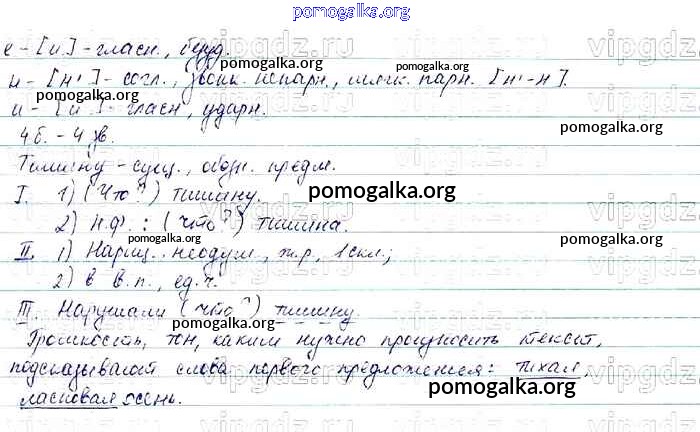 pomogalka.org
е - [и] - гласн., безуд.
н - [н'] - согл., звонк. непарн., мягк. парн. [н'-н].
и - [и́] - гласн., ударн.
4 б. - 4 зв.
pomogalka.org
Тишину - сущ., обозн. предм.
I. 1) (Что?) тишину.
pomogalka.org
2) Н.ф.: (что?) тишина.
pomogalka.org
II. 1) Нариц., неодуш., ж.р., 1 скл.;
2) в В.п., ед.ч.
pomogalka.org
III. Нарушали (что?) тишину.
pomogalka.org
Громкость, тон, каким нужно произносить текст,
подсказывают слова первого предложения: тихая,
pomogalka.org
ласковая осень.